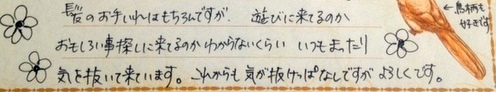 髪のお手いれはもちろんですが、遊びに来てるのか
おもしろい事探しに来てるのかわからないくらい いつもまったり
気を抜いて来ています。これからも気が抜けっぱなしですが よろしくです。
←鳥柄も
好きです